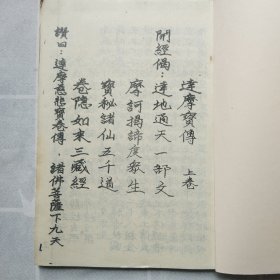 達摩寶傳 上卷
開經偈：達地通天一部文
摩訶揭諦度眾生
寶秘諸仙五千道
卷隐如來三藏經
讚曰：達摩慈悲寶卷傳．諸佛菩薩下九天